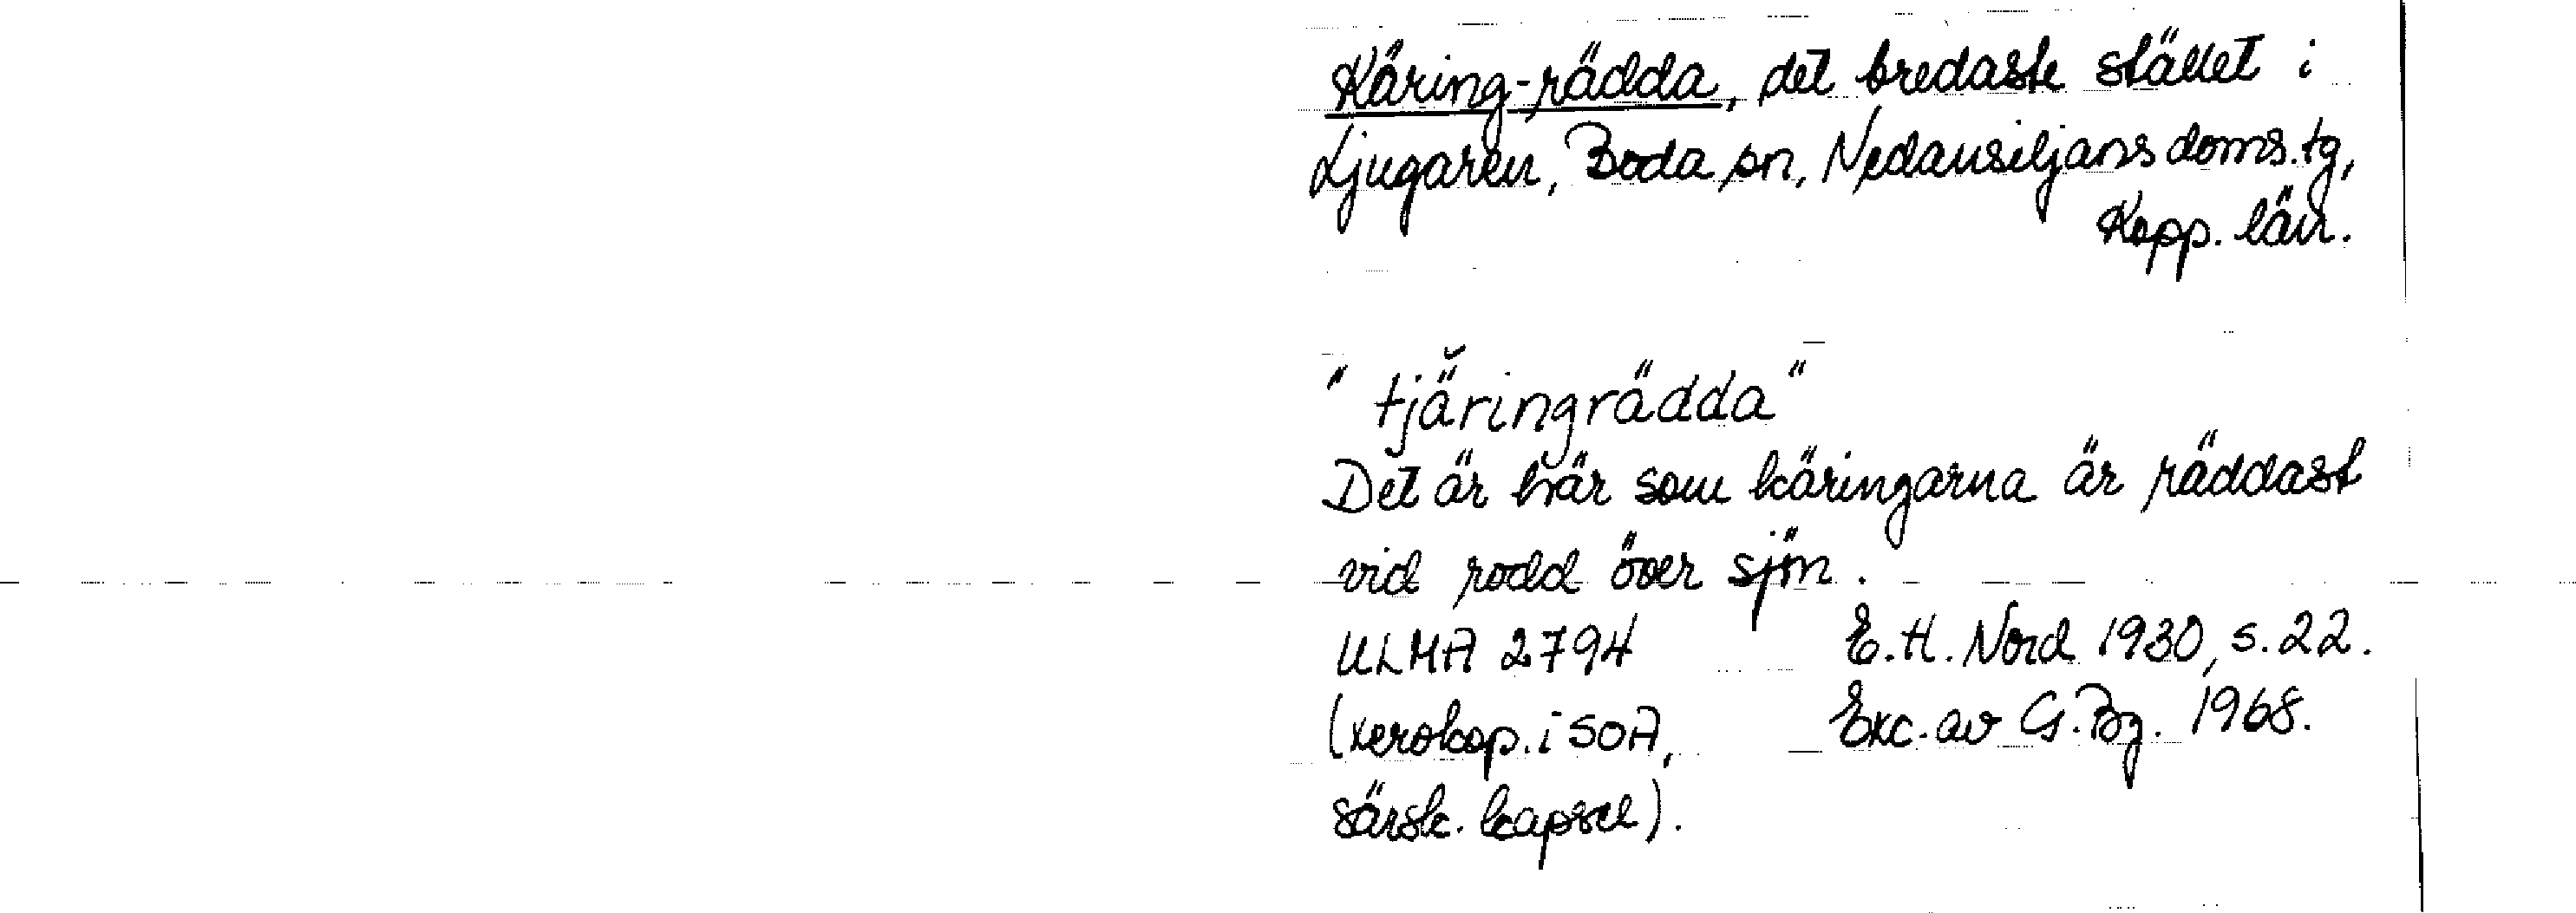 Käring-rädda, det bredaste stället i
Ljugaren, Boda sn, Nedansiljans doms.tg,
Kopp. län.
"tjä̆ringrädda"
Det är här som käringarna är räddast
vid rodd över sjön.
ULMA 2794 E.H. Nord 1930, s. 22.
(xerokop. i SOA, Exc. av G. Bg. 1968.
särsk. kapsel).